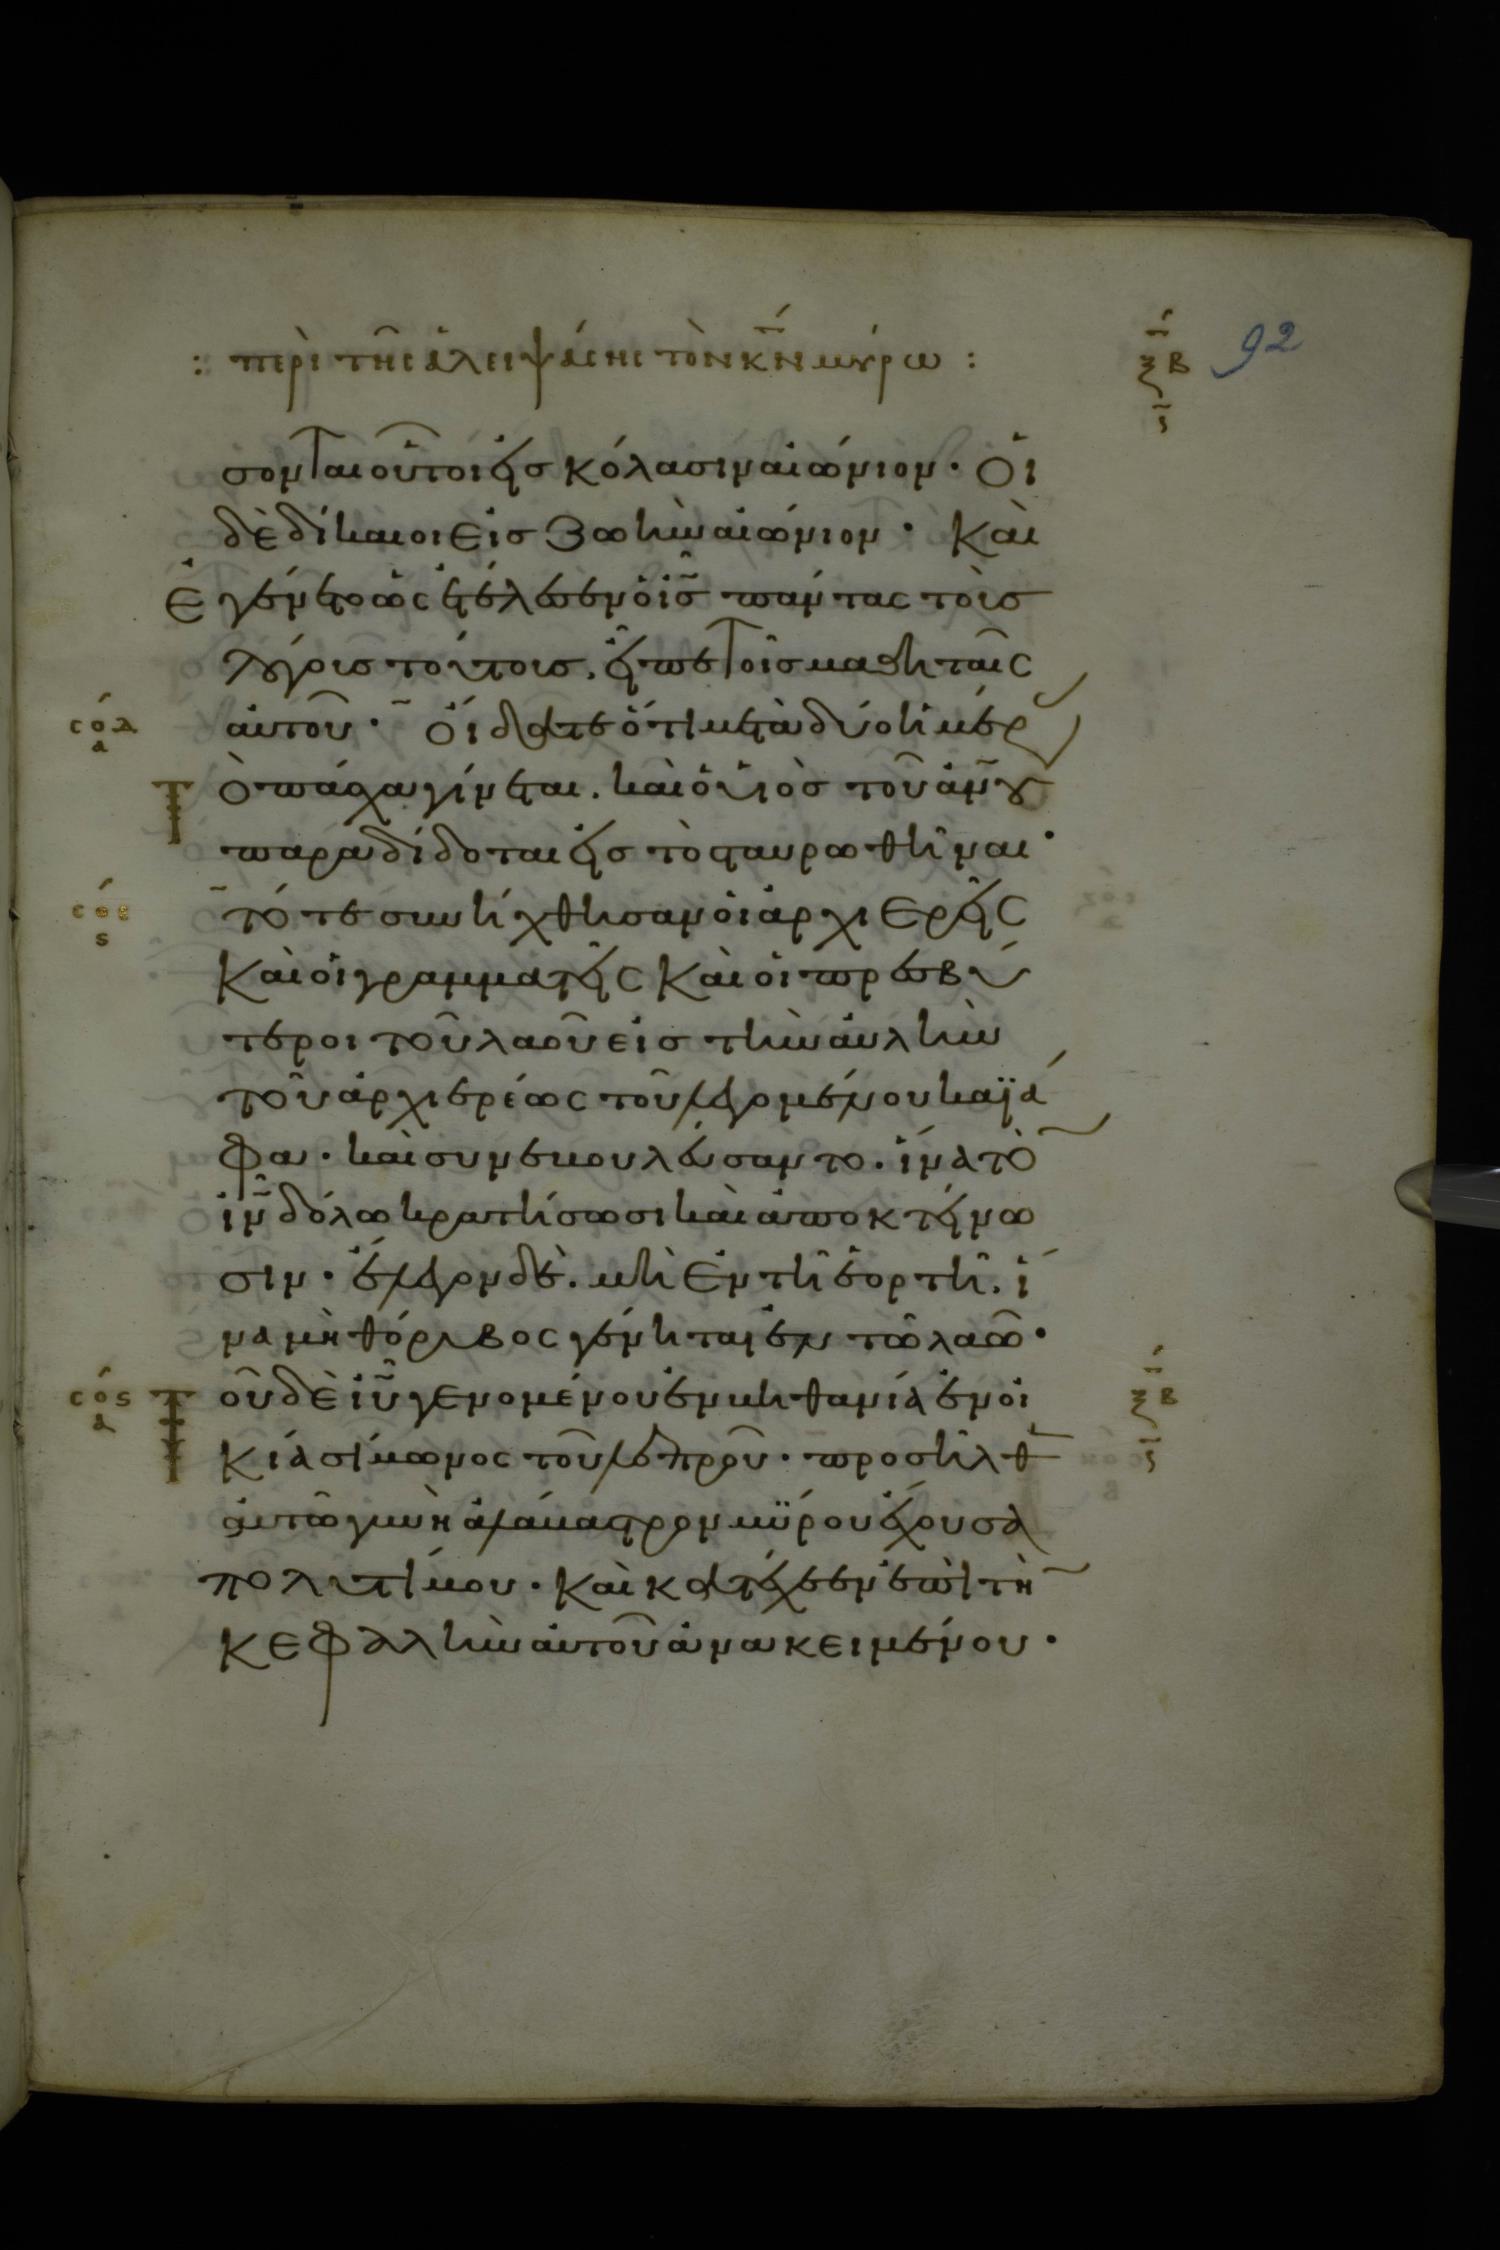 : περὶ τῆς ἀλειψάσης τὸν κ̅ν̅ μύρω :
ξβ
92
σονται οὗτοι εἰς κόλασιν αἰώνιον · Οἱ
δὲ δίκαιοι εἰς ζωὴν αἰώνιον · Καὶ
ἐγένετο ὡς ἐτέλεσεν ὁ ι̅ς̅ πάντας τοὺς
λόγους τούτους, εἶπε τοῖς μαθηταῖς
σοδ
α
αὐτοῦ · Οἴδατε ὅτι μετὰ δύο ἡμέρ
Τὸ πάσχα γίνεται. καὶ ὁ υἱὸς τοῦ α̅ν̅ου
παραδίδοται εἰς τὸ σταυρωθῆναι ·
σοε
ς
τότε συνήχθησαν οἱ ἀρχιερεῖς
Καὶ οἱ γραμματεῖς Καὶ οἱ πρεσβύ
τεροι τοῦ λαοῦ εἰς τὴν αὐλὴν
τοῦ ἀρχιερέως τοῦ λεγομένου καϊά
φα · καὶ συνεβουλεύσαντο · ἵνα τὸ
ι̅ν̅ δόλω κρατήσωσι καὶ ἀποκτείνω
σιν · ἔλεγον δέ. μὴ ἐν τῆ ἑορτῆ, ἵ
να μὴ θόρυβος γένηται ἐν τῶ λαῶ ·
σος
δ
Τοῦ δὲ ι̅υ̅ γενομένου ἐν βηθανία ἐν οἰ
ξβ
κία σίμωνος τοῦ λεπροῦ · προσῆλθ
αὐτῶ γυνὴ ἀλάβαστρον μύρου ἔχουσα
πολυτίμου · Καὶ κατέχεεν ἐπὶ τὴ
κεφαλὴν αὐτοῦ ἀνακειμένου ·